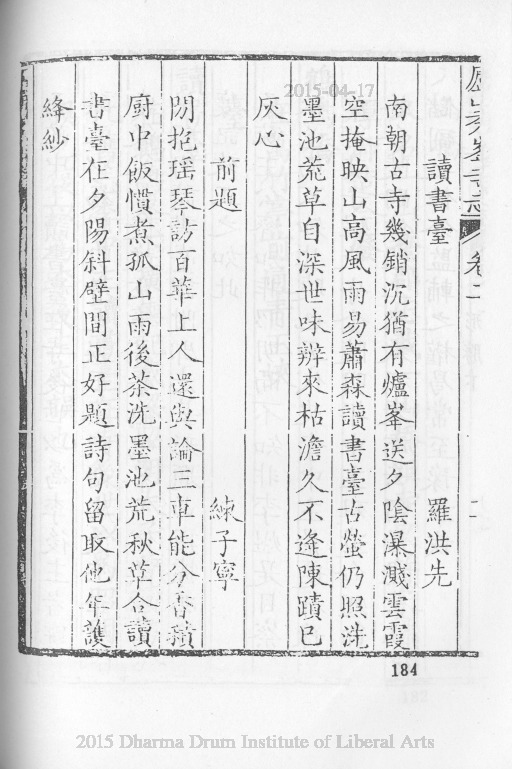 2015-04-17
廬山秀峯寺志 卷二 二
讀書臺 羅洪先
南朝古寺幾銷沉猶有爐峯送夕陰瀑濺雲霞
空掩映山高風雨易蕭森讀書臺古螢仍照洗
墨池荒草自深世味辧來枯澹久不逢陳蹟已
灰心
前題 練子寧
閉抱瑶琴訪百華上人還與論三車能分香積
廚中飯慣煮孤山雨後茶洗墨池荒秋草合讀
書臺在夕陽斜壁間正好題詩句留取他年護
絳紗
184
2015 Dharma Drum Institute of Liberal Arts